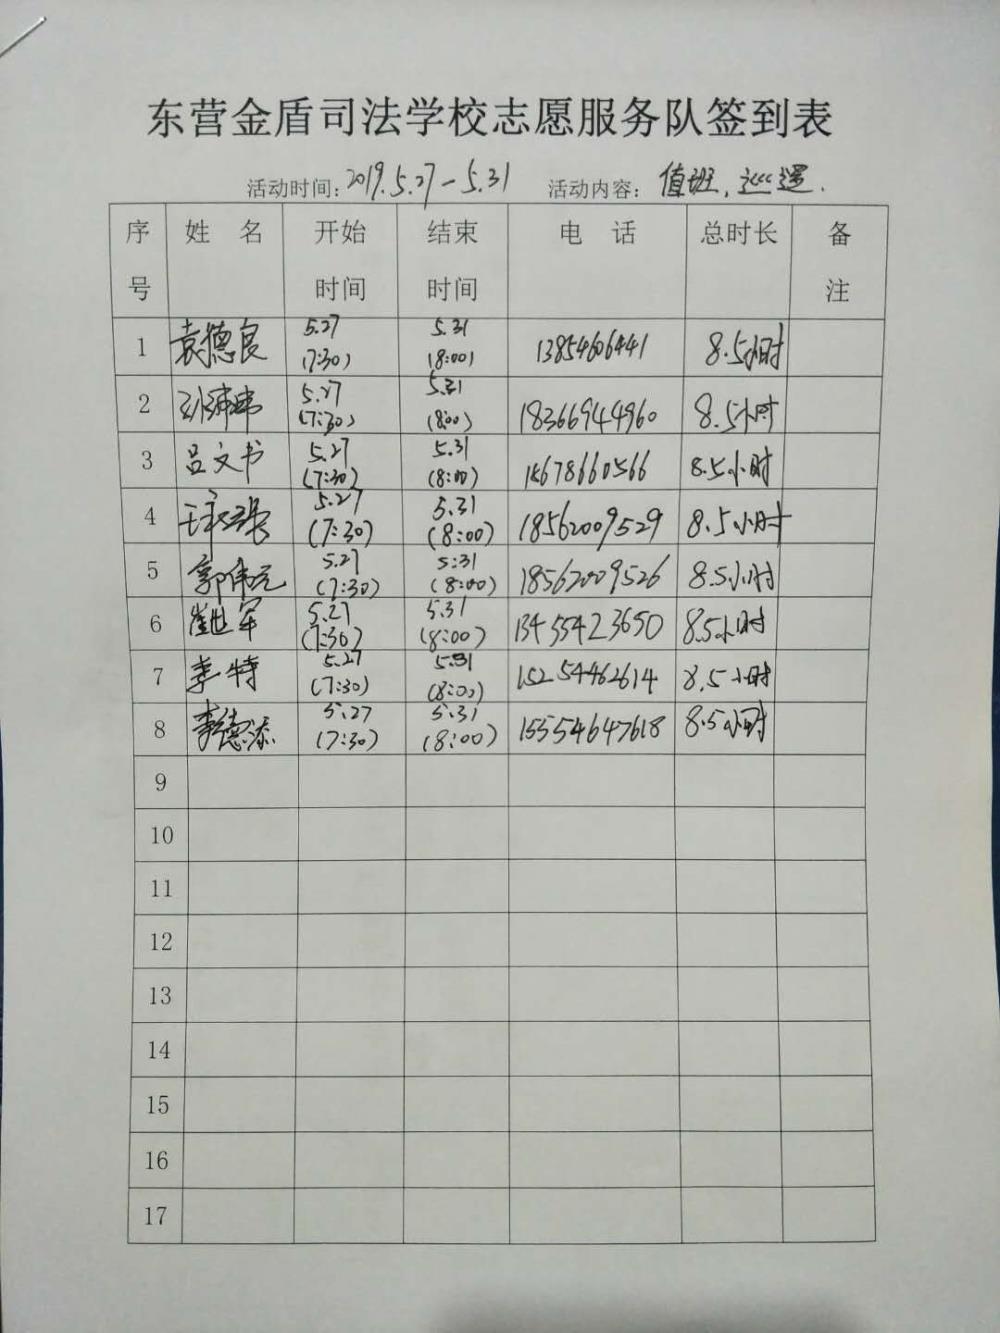 东营金盾司法学校志愿服务队签到表
活动时间：2019.5.27－5.31 活动内容：值班，巡逻.
序号 姓 名 开始时间 结束时间 电 话 总时长 备注
1 袁德良 5.27 (7:30) 5.31 (8:00) 13854606441 8.5小时
2 5.27 (7:30) 5.31 (8:00) 18366944960 8.5小时
3 吕文书 5.27 (7:30) 5.31 (8:00) 15678660566 8.5小时
4 5.27 (7:30) 5.31 (8:00) 18562009529 8.5小时
5 郭伟元 5.27 (7:30) 5:31 (8:00) 18562009526 8.5小时
6 崔世军 5.27 (7:30) 5.31 (8:00) 13455423650 8.5小时
7 李特 5.27 (7:30) 5.31 (8:00) 15254462614 8.5小时
8 李德添 5.27 (7:30) 5.31 (8:00) 15554647618 8.5小时
9
10
11
12
13
14
15
16
17